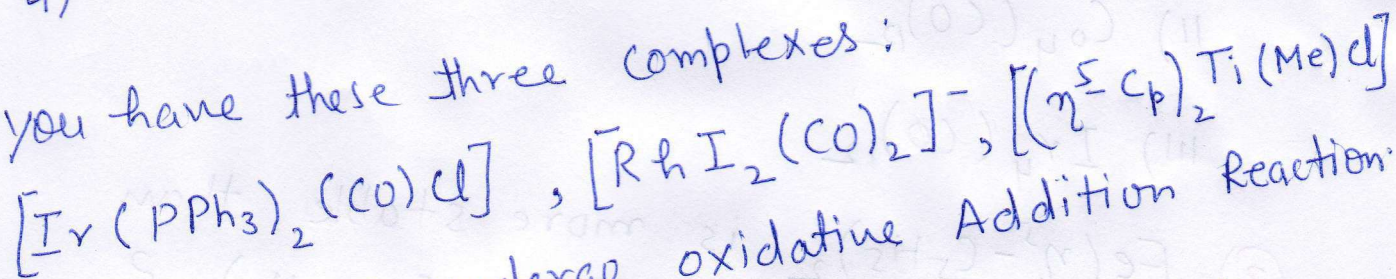 you have these three complexes :
[Ir(PPh₃)₂(CO)Cl] , [RhI₂(CO)₂]⁻, [(η⁵-Cp)₂Ti(Me)Cl]
oxidative Addition Reaction.